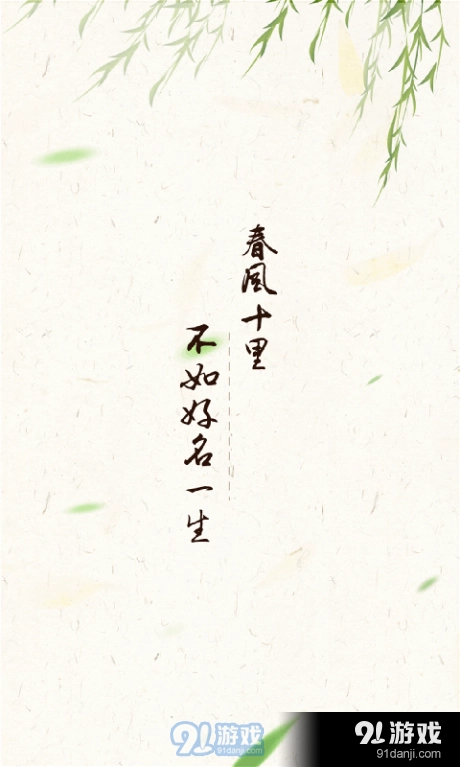 春风十里
不如好名一生
91游戏
91danji.com
91游戏
91danji.com